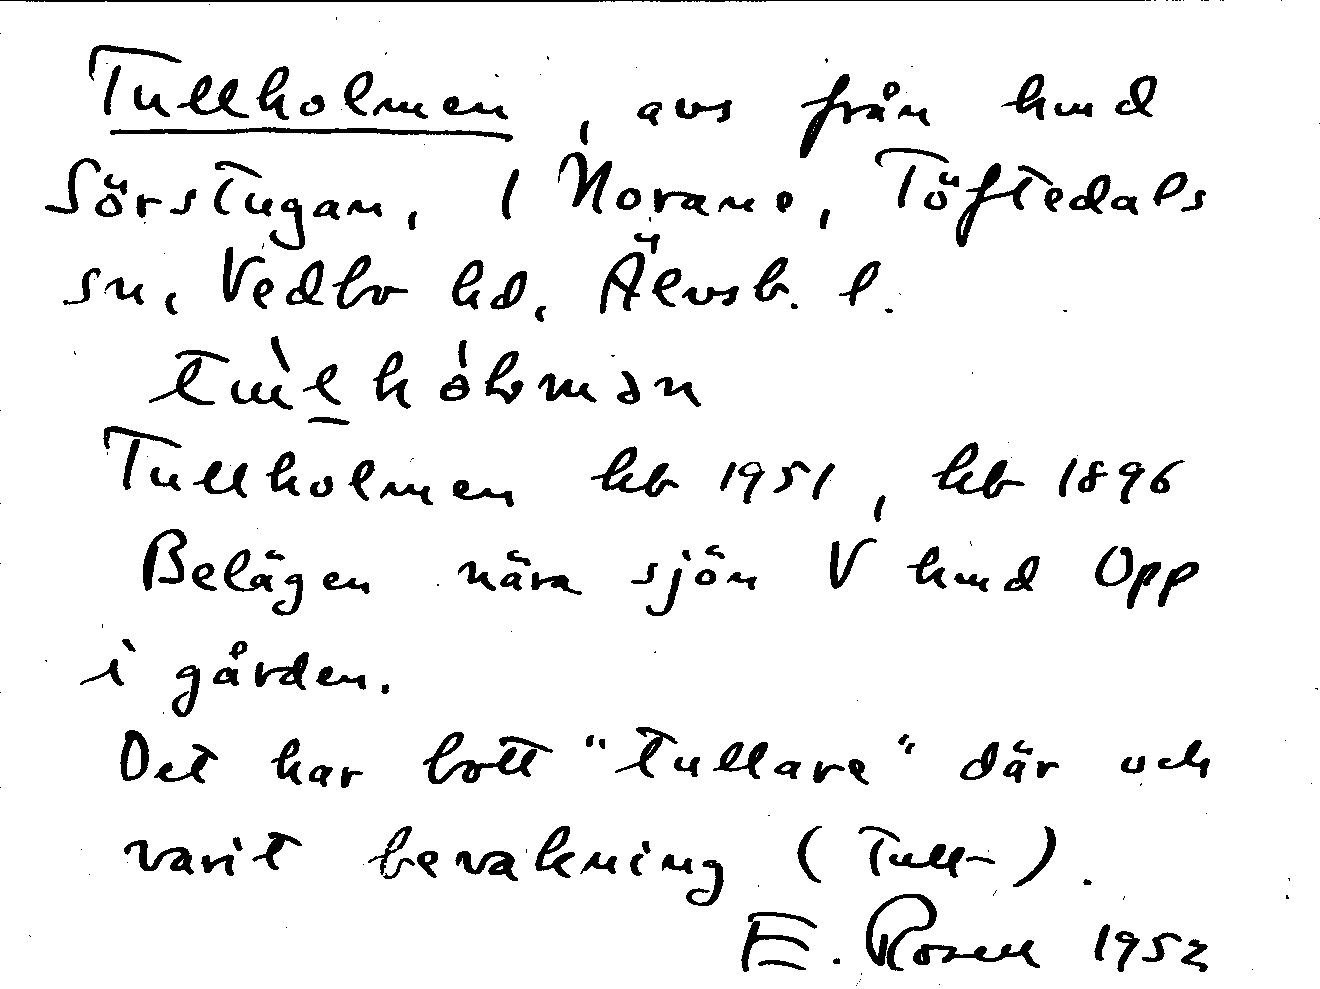 Tullholmen, avs från hmd
Sörstugan, 1 Norane, Töftedals
sn, Vedbo hd, Älvsb. l.
Tullholmen kb 1951, kb 1896
Belägen nära sjön V hmd Opp
i gården.
Det har bott "tullare" där och
varit bevakning (Tull-).
E. Rosell 1952